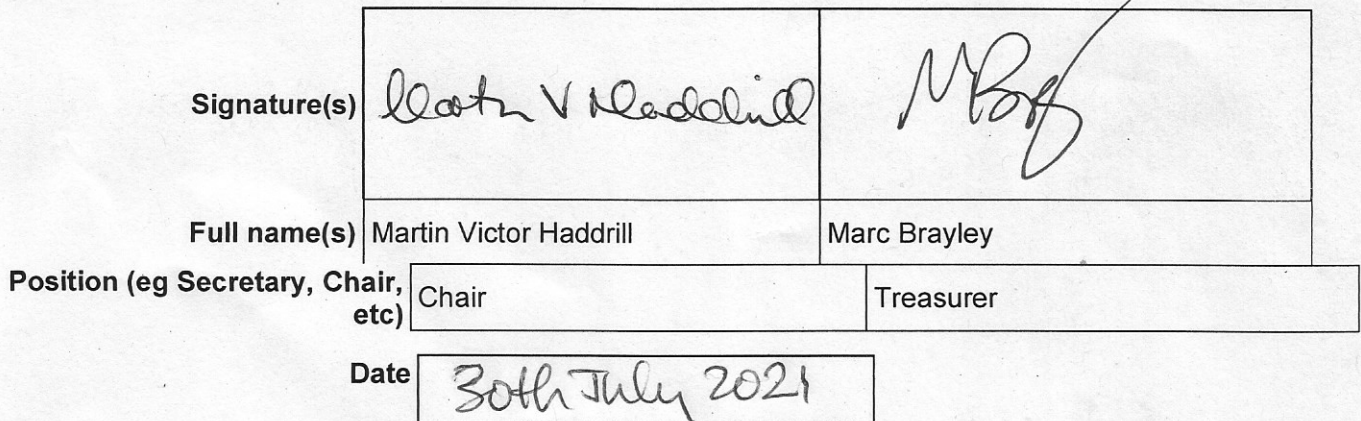 Signature(s) Martin V Haddrill MBry
Full name(s) Martin Victor Haddrill Marc Brayley
Position (eg Secretary, Chair, etc) Chair Treasurer
Date 30th July 2021